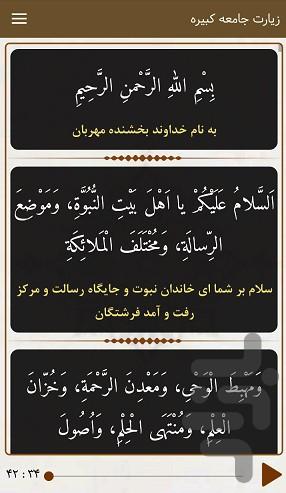 زیارت جامعه کبیره
بِسْمِ اللهِ الرَّحْمنِ الرَّحِيمِ
به نام خداوند بخشنده مهربان
اَلسَّلامُ عَلَيْكُمْ يا اَهْلَ بَيْتِ النُّبُوَّةِ، وَمَوْضِعَ
الرِّسالَةِ، وَمُخْتَلَفَ الْمَلائِكَةِ
سلام بر شما ای خاندان نبوت و جایگاه رسالت و مرکز
رفت و آمد فرشتگان
وَمَهْبِطَ الْوَحْيِ، وَمَعْدِنَ الرَّحْمَةِ، وَخُزّانَ
الْعِلْمِ، وَمُنْتَهَى الْحِلْمِ، وَاُصُولَ
۴۲ : ۳۴
بازار